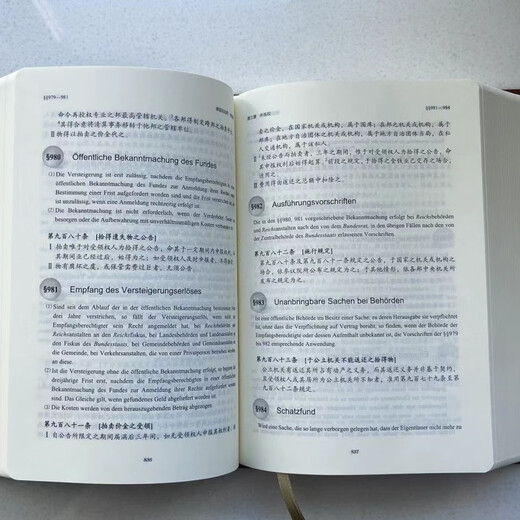 §§979—981
命令再授权专业之邦最高管辖机关。各邦得制定跨邦之规定
其得合意将清算事务移于他邦之管辖单位。
II 物得以拍卖之价金代之。
§980
Öffentliche Bekanntmachung des Fundes
(1) Die Versteigerung ist erst zulässig, nachdem die Empfangsberechtigten in
öffentlichen Bekanntmachung des Fundes zur Anmeldung ihrer Rechte unter
Bestimmung einer Frist aufgefordert worden sind und die Frist verstrichen ist; sie
ist unzulässig, wenn eine Anmeldung rechtzeitig erfolgt ist.
(2) Die Bekanntmachung ist nicht erforderlich, wenn der Verderb der Sache zu
besorgen oder die Aufbewahrung mit unverhältnismäßigen Kosten verbunden ist.
第九百八十条 [拾得遗失物之公告]
I 拍卖惟对受领权人为拾得之公告，
II 物有腐坏之虞，或保管需费过巨者，无须公告。
§981
Empfang des Versteigerungserlöses
(1) Sind seit dem Ablauf der in der öffentlichen Bekanntmachung bestimmten Frist
drei Jahre verstrichen, so fällt der Versteigerungserlös, wenn nicht ein
Empfangsberechtigter sein Recht angemeldet hat, bei Reichsbehörden und
Reichsanstalten an den Reichsfiskus, bei Landesbehörden und Landesanstalten
an den Fiskus des Bundesstaats, bei Gemeindebehörden und Gemeindeanstalten an
die Gemeinde, bei Verkehrsanstalten, die von einer Privatperson betrieben werden,
an diese.
(2) Ist die Versteigerung ohne die öffentliche Bekanntmachung erfolgt, so beginnt die
dreijährige Frist erst, nachdem die Empfangsberechtigten in einer öffentlichen
Bekanntmachung des Fundes zur Anmeldung ihrer Rechte aufgefordert worden
sind. Das Gleiche gilt, wenn gefundenes Geld abgeliefert worden ist.
(3) Die Kosten werden von dem herauszugebenden Betrag abgezogen.
第九百八十一条 [拍卖价金之受领]
I 自公告所限定之期间届满后三年间，如无受领权人申报其权利者，
836
§§981—984
卖之价金，在国家机关或机构，属于国库；在邦之机关或机构，
属于地方自治团体，在私
人交通机构，属于该私人。
II 未经公告而拍卖者，三年之期间，
申报权利后始得起算。前段之规定，于拾得之金钱业已交存者，
III 费用应自返还之总额中扣除之。
§982
Ausführungsvorschriften
Die in den §§980, 981 vorgeschriebene Bekanntmachung erfolgt bei Reichsbehörden
und Reichsanstalten nach den von dem Bundesrat, in den übrigen Fällen nach den von
der Zentralbehörde des Bundesstaats erlassenen Vorschriften.
第九百八十二条 [施行规定]
第九百八十条及第九百八十一条所规定之公告，于国家之机关或机构之
场合，依参议院所公布之规定为之；于其他情形，依各邦中央机关所
发布之规定为之。
§983
Unanbringbare Sachen bei Behörden
Ist eine öffentliche Behörde im Besitz einer Sache, zu deren Herausgabe sie verpflichtet
ist, ohne dass die Verpflichtung auf Vertrag beruht, so finden, wenn der Behörde der
Empfangsberechtigte oder dessen Aufenthalt unbekannt ist, die Vorschriften der §§979
bis 982 entsprechende Anwendung.
第九百八十三条 [于公立机关不能返还之拾得物]
公立机关有返还其所占有动产之义务，而该义务并非基于契约，
且受领权人或其居所为公立机关所不知者，准用第九百七十九条至
第九百八十二条之规定。
§984
Schatzfund
Wird eine Sache, die so lange verborgen gelegen hat, dass der Eigentümer nicht mehr zu
837